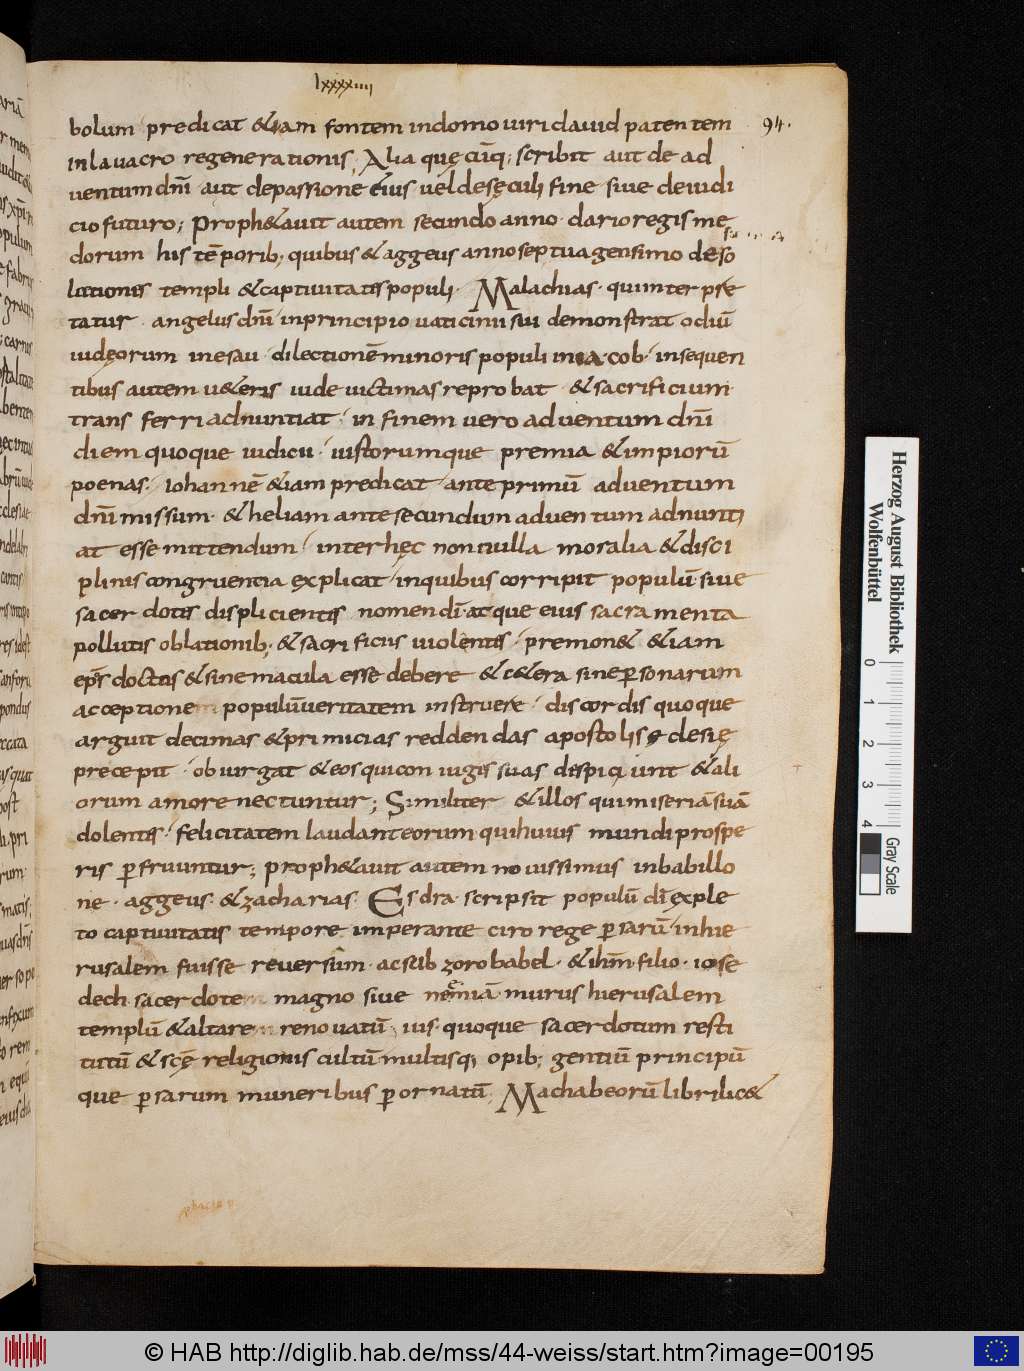 lxxxxiiii
94.
bolum predicat &iam fontem indomo uiri dauid patentem
inlauacro regenerationis; Alia quę cūq; scribit aut de ad
uentum dnī aut depassione eius uel desęculi fine siue deiudi
cio futuro; Proph&auit autem secundo anno darii regis me
dorum his tēporib; quibus & aggeus anno septuagensimo deso
lationis templi & captiuitatis populi. Malachias. qui interpre
tatur angelus dnī inprincipio uaticinii sui demonstrat odiū
iudęorum inesau dilectionē minoris populi inia cob insequen
tibus autem u&eris iude uictimas reprobat & sacrificium
trans ferri adnuntiat in finem uero aduentum dnī
diem quoque iudicii iustorumque premia & impiorū
poenas. iohannē &iam predicat ante primū aduentum
dnī missum & heliam ante secundum aduentum adnunti
at esse mittendum inter hęc nonnulla moralia & disci
plinis congruentia explicat inquibus corripit populū siue
sacerdotes displicientes nomen dī atque eius sacramenta
pollutis oblationib; & sacrificiis uiolentes premon& &iam
epōs doctus & sine macula esse debere & c&era sine personarum
acceptione populū ueritatem instruere discordis quoque
arguit decimas & primicias reddendas apostolis ęclesię
precepit obiurgat & eos qui coniugis suas despiciunt & ali
orum amore nectuntur; Similiter & illos qui miseriā suā
dolentes felicitatem laudant eorum qui huius mundi prospe
ris perfruuntur; proph&auit autem nouissimus inbabillo
ne. aggeus. & zacharias. Esdra scripsit populū dī exple
to captiuitatis tempore imperante ciro rege persarū inhie
rusalem fuisse reuersum. ac sub zorobabel. & ihm̄ filio iose
dech sacerdote magno siue nemiā murus hierusalem
templū & altare renouatū ius quoque sacerdotum resti
tutū & scę religionis cultū multisq; opib; gentiū principū
que persarum muneribus perornatū; Machabeorū libri lic&
© HAB http://diglib.hab.de/mss/44-weiss/start.htm?image=00195
Herzog August Bibliothek
Wolfenbüttel
0 1 2 3 4
Gray Scale